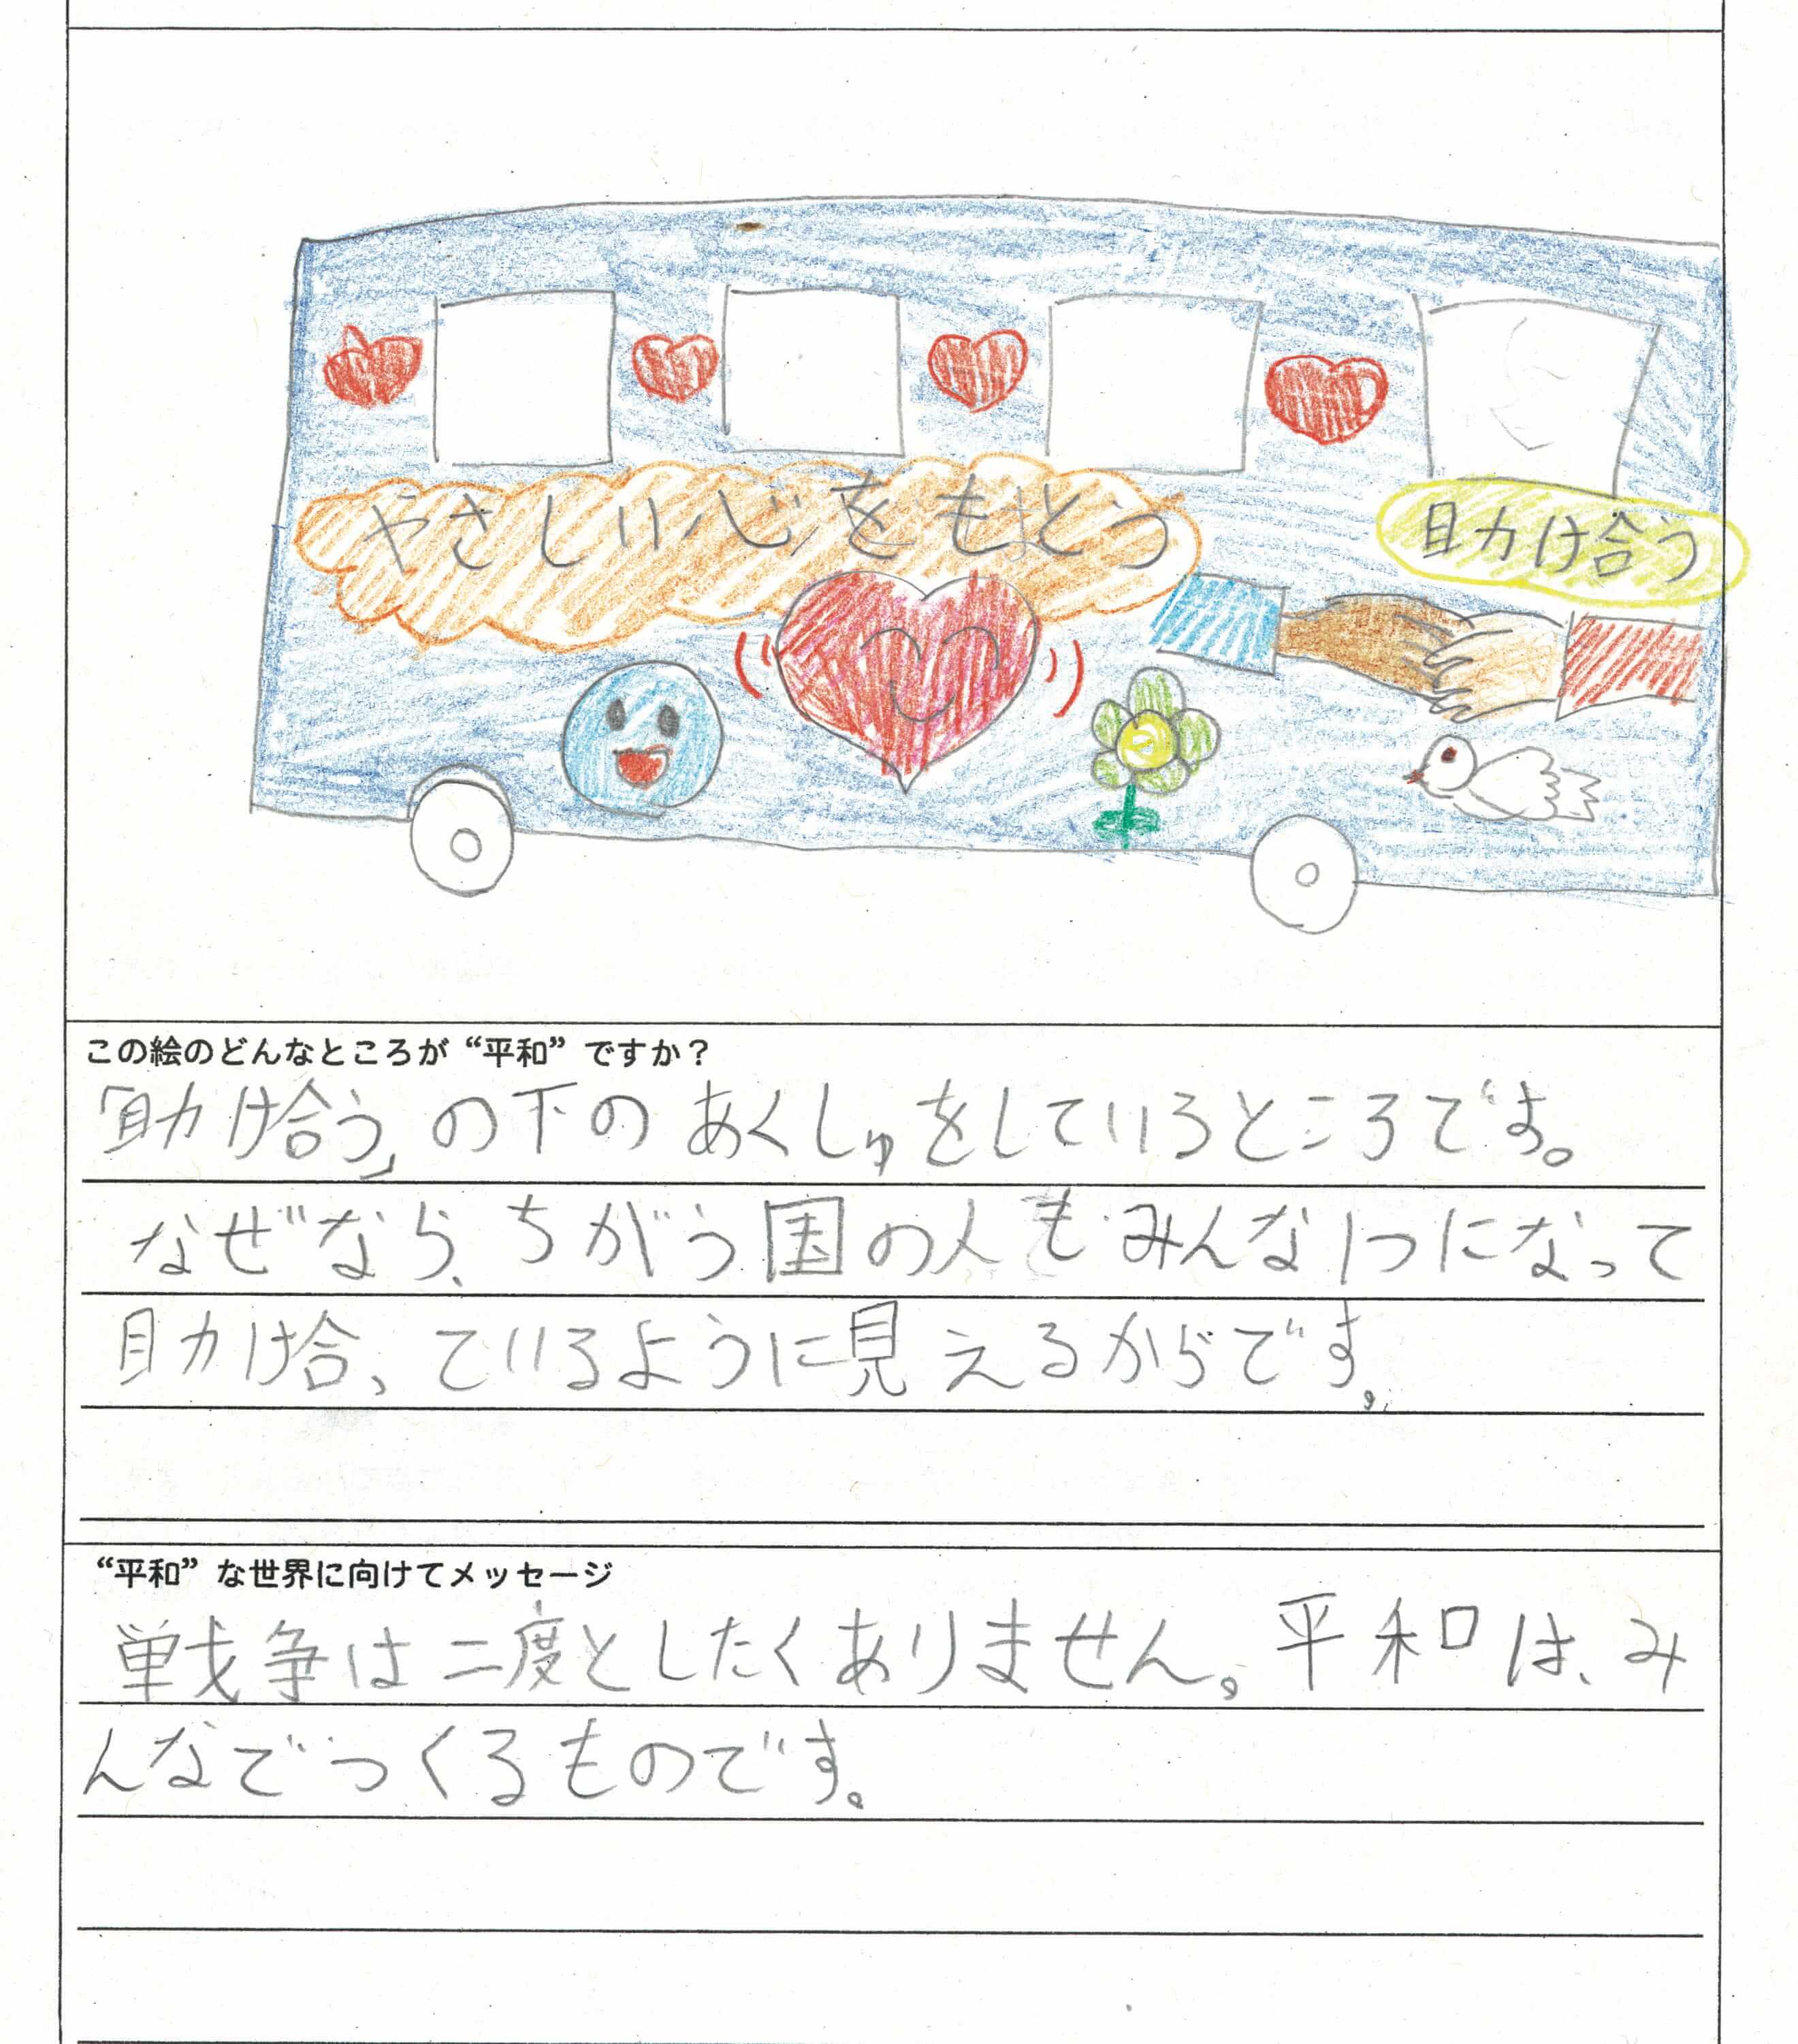 やさしい心をもとう
助け合う
この絵のどんなところが“平和”ですか？
「助け合う」の下のあくしゅをしているところです。
なぜなら、ちがう国の人もみんな1つになって
助け合っているように見えるからです。
“平和”な世界に向けてメッセージ
戦争は二度としたくありません。平和は、み
んなでつくるものです。